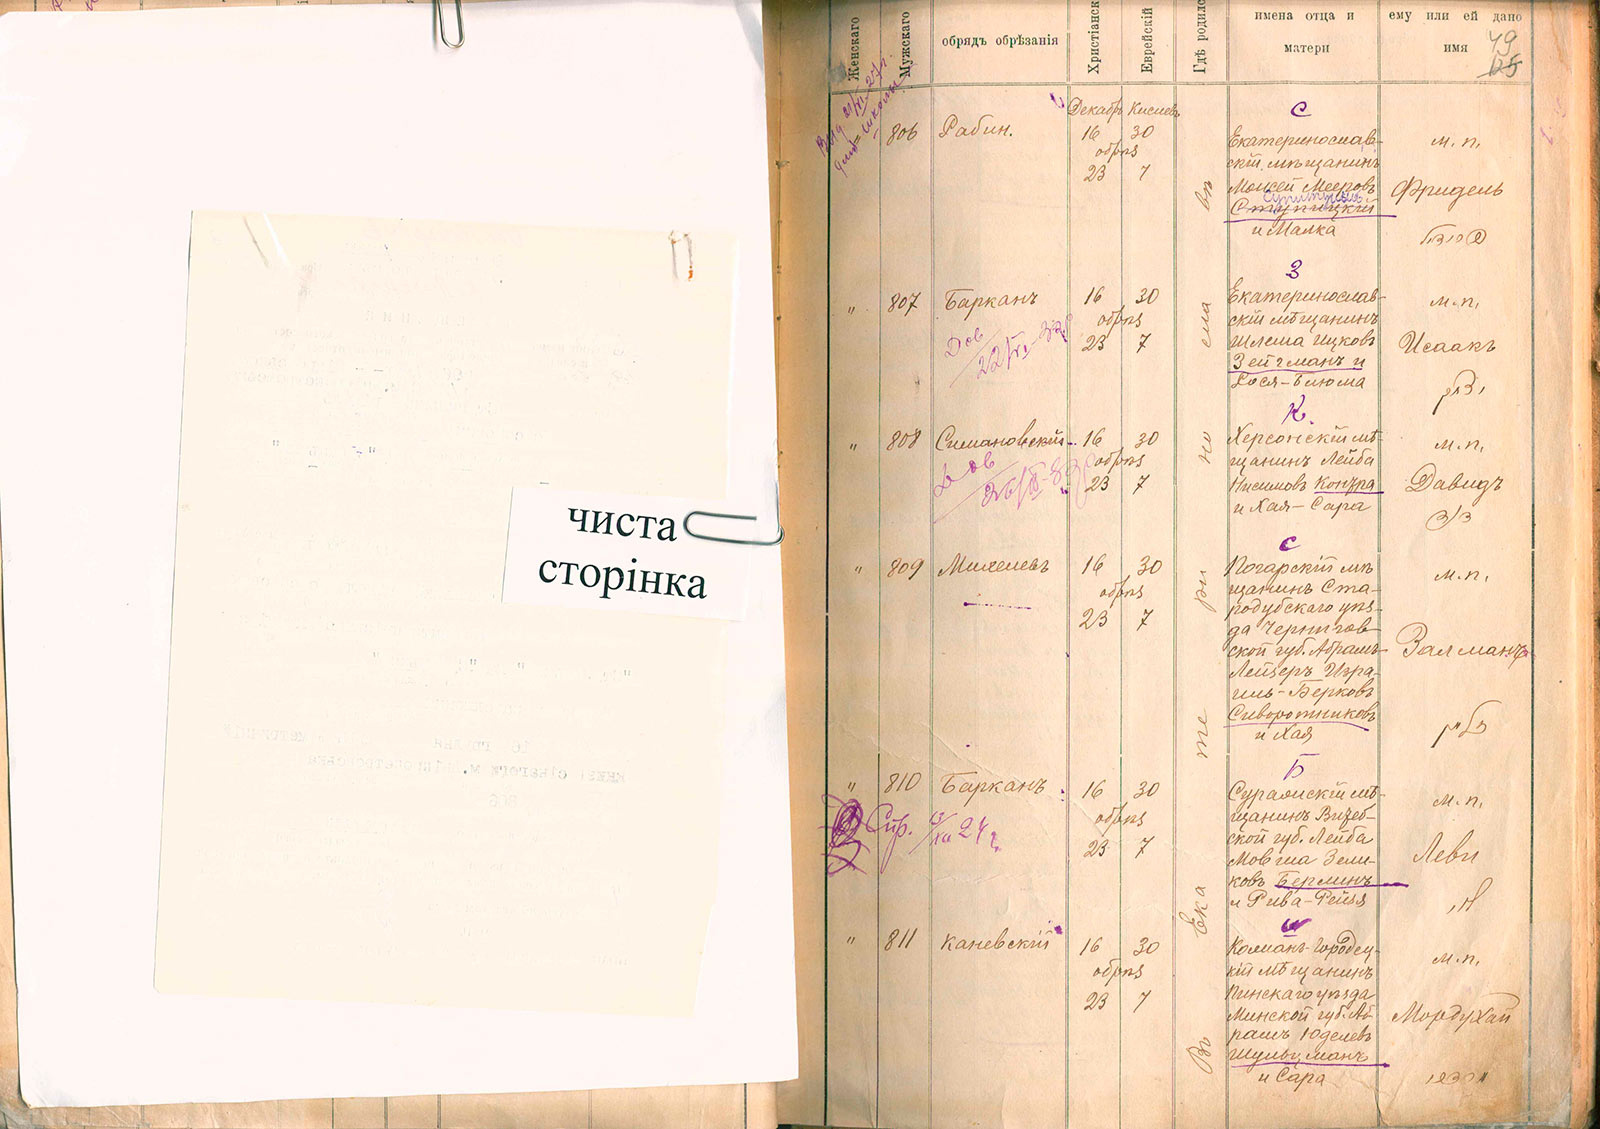 чиста
сторінка
Женскаго
Мужскаго
обрядъ обрѣзанія
Христіанск
Еврейскій
Гдѣ родилс
имена отца и
матери
ему или ей дано
имя
49
125
Декабр Кислев
806 Рабин. 16 30
обрѣз
23 7
С
Екатеринослав-
скій мѣщанинъ
Моисей Мееровъ
Ступицкій
и Малка
м.п.
Фридель
" 807 Барканъ 16 30
обрѣз
23 7
Дов
З
Екатеринослав-
скій мѣщанинъ
Шлема Ицковъ
Зейгманъ и
Хося-Блюма
м.п.
Исаакъ
" 808 Симановскій 16 30
обрѣз
23 7
Дов
К.
Херсонскій мѣ-
щанинъ Лейба
Нисимовъ
и Хая-Сара
м.п.
Давидъ
" 809 Михелевъ 16 30
обрѣз
23 7
С
Погарскій мѣ-
щанинъ Ста-
родубскаго уѣз-
да Чернигов-
ской губ. Абрамъ-
Лейзеръ Изра-
иль-Берковъ
Сиворотниковъ
и Хая
м.п.
Залманъ
" 810 Барканъ 16 30
обрѣз
23 7
Спр. 24 г.
Б
Суражскій мѣ-
щанинъ Витеб-
ской губ. Лейба
Мовша Зели-
ковъ Берлинъ
и Рива-Рейзя
м.п.
Леви
" 811 Каневскій 16 30
обрѣз
23 7
Ш
скій мѣщанинъ
Пинскаго уѣзда
Минской губ. Аб-
рамъ Юделевъ
Шульцманъ
и Сара
м.п.
Мордухай
Въ Екатеринославѣ